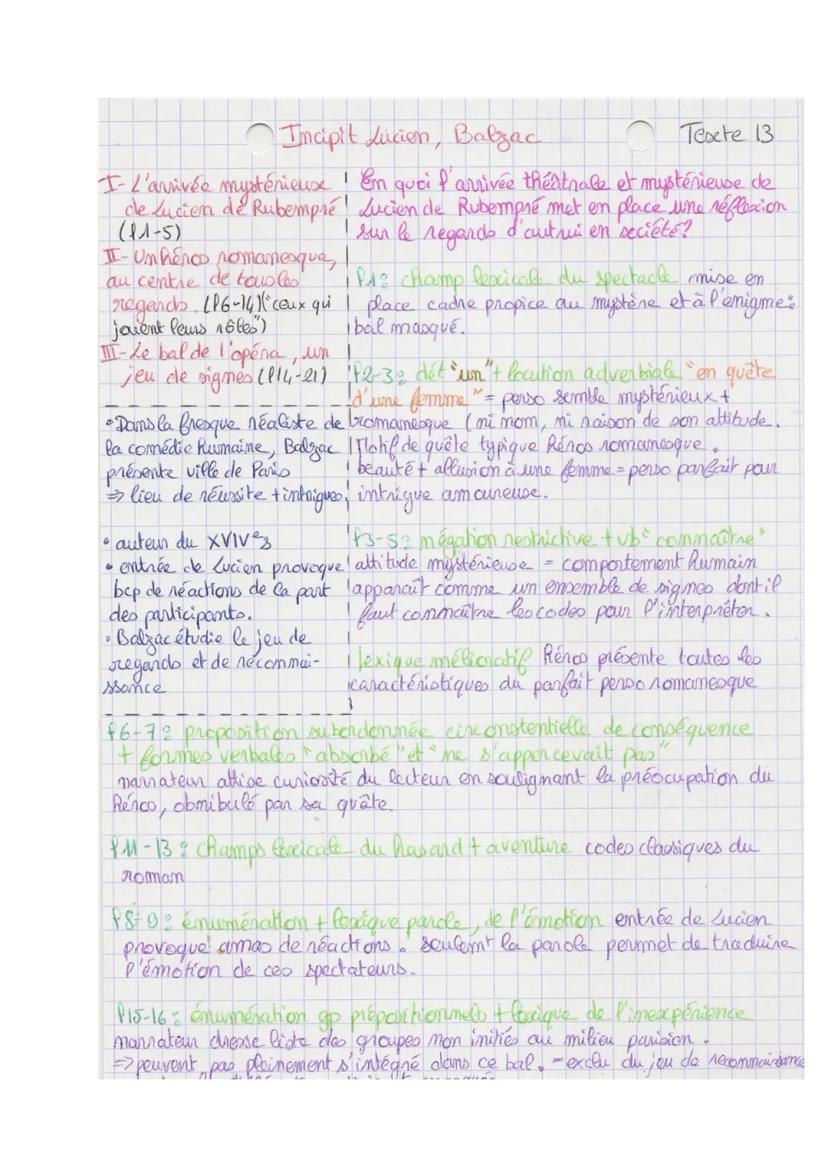 Incipit Lucien, Balzac
Texte 13
I- L'arrivée mystérieuse
de Lucien de Rubempré
(l1-5)
II- Un héros romanesque,
au centre de tous les
regards (l6-14)("ceux qui
jouent leurs rôles")
III- Le bal de l'opéra, un
jeu de signes (l14-21)
• Dans la fresque réaliste de
la comédie humaine, Balzac
présente ville de Paris
⇒ lieu de réussite + intrigues
• auteur du XVIVes
• entrée de Lucien provoque
bcp de réactions de la part
des participants.
• Balzac étudie le jeu de
regards et de reconnai-
ssance
En quoi l'arrivée théâtrale et mystérieuse de
Lucien de Rubempré met en place une réflexion
sur le regards d'autrui en société?
l1: champ lexicale du spectacle mise en
place cadre propice au mystère et à l'énigme:
bal masqué.
l2-3: dét "un" + locution adverbiale "en quête
d'une femme" = perso semble mystérieux +
romanesque (ni nom, ni raison de son attitude.
Motif de quête typique héros romanesque.
beauté + allusion à une femme = perso parfait pour
intrigue amoureuse.
l3-5: négation restrictive + vb "connaître"
attitude mystérieuse = comportement humain
apparaît comme un ensemble de signes dont il
faut connaître les codes pour l'interpréter.
lexique mélioratif héros présente toutes les
caractéristiques du parfait perso romanesque
l6-7: proposition subordonnée circonstentielle de conséquence
+ formes verbales "absorbé" et "ne s'appercevait pas"
narrateur attise curiosité du lecteur en soulignant la préocupation du
héros, obnibulé par sa quête.
l11-13: champs lexicale du hasard + aventure codes classiques du
roman
l8-9: énumération + lexique parole, de l'émotion entrée de Lucien
provoque amas de réactions. seulemt la parole permet de traduire
l'émotion de ces spectateurs.
l15-16: énumération gp prépositionnels + lexique de l'inexpérience
narrateur dresse liste des groupes non initiés au milieu parisien.
⇒ peuvent pas pleinement s'intégré dans ce bal. = exclu du jeu de reconnaissance